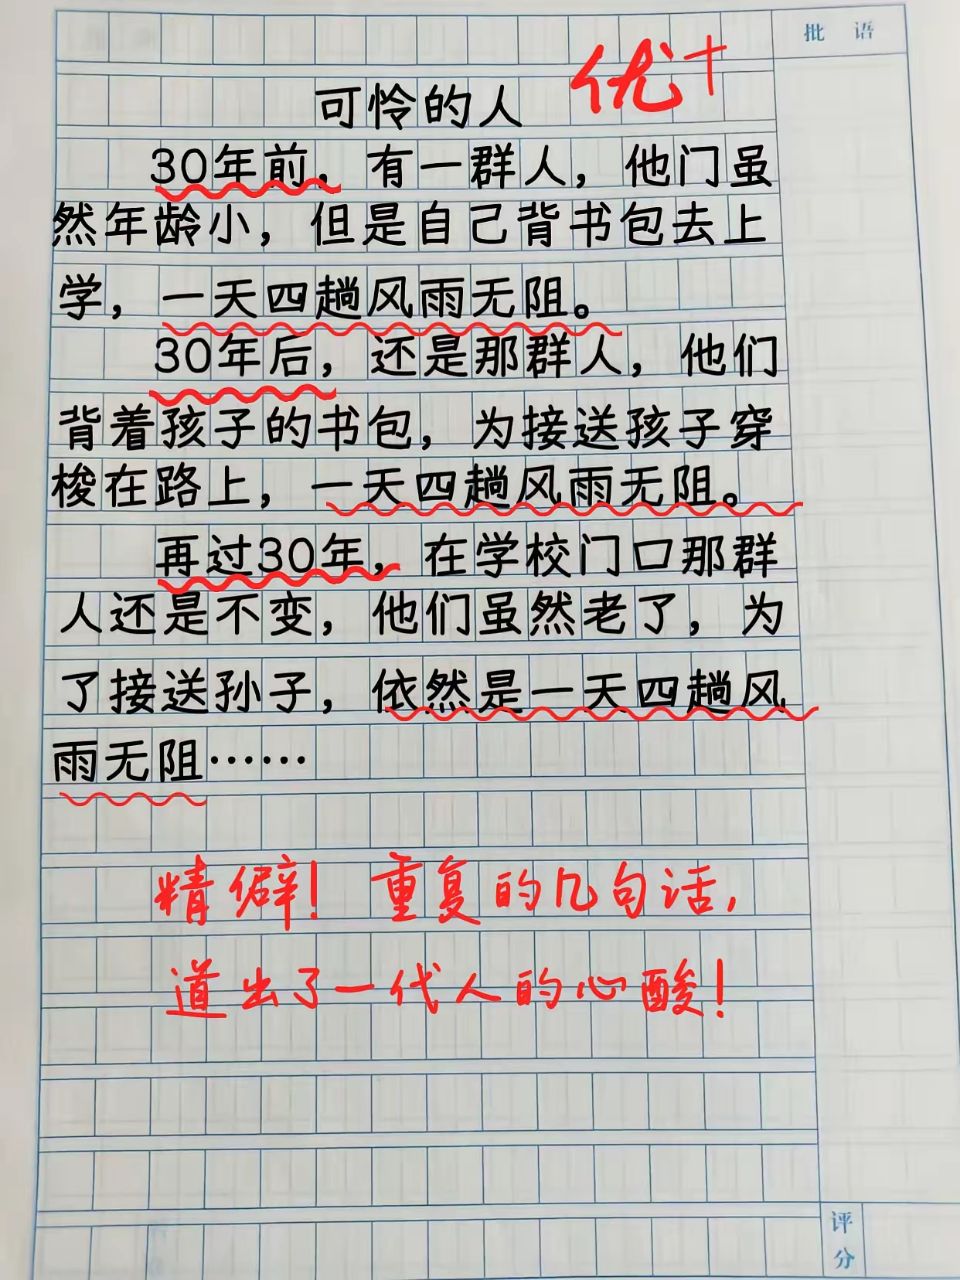 批 语
优+
可怜的人
30年前，有一群人，他门虽
然年龄小，但是自己背书包去上
学，一天四趟风雨无阻。
30年后，还是那群人，他们
背着孩子的书包，为接送孩子穿
梭在路上，一天四趟风雨无阻。
再过30年，在学校门口那群
人还是不变，他们虽然老了，为
了接送孙子，依然是一天四趟风
雨无阻……
精僻！重复的几句话，
道出了一代人的心酸！
评
分